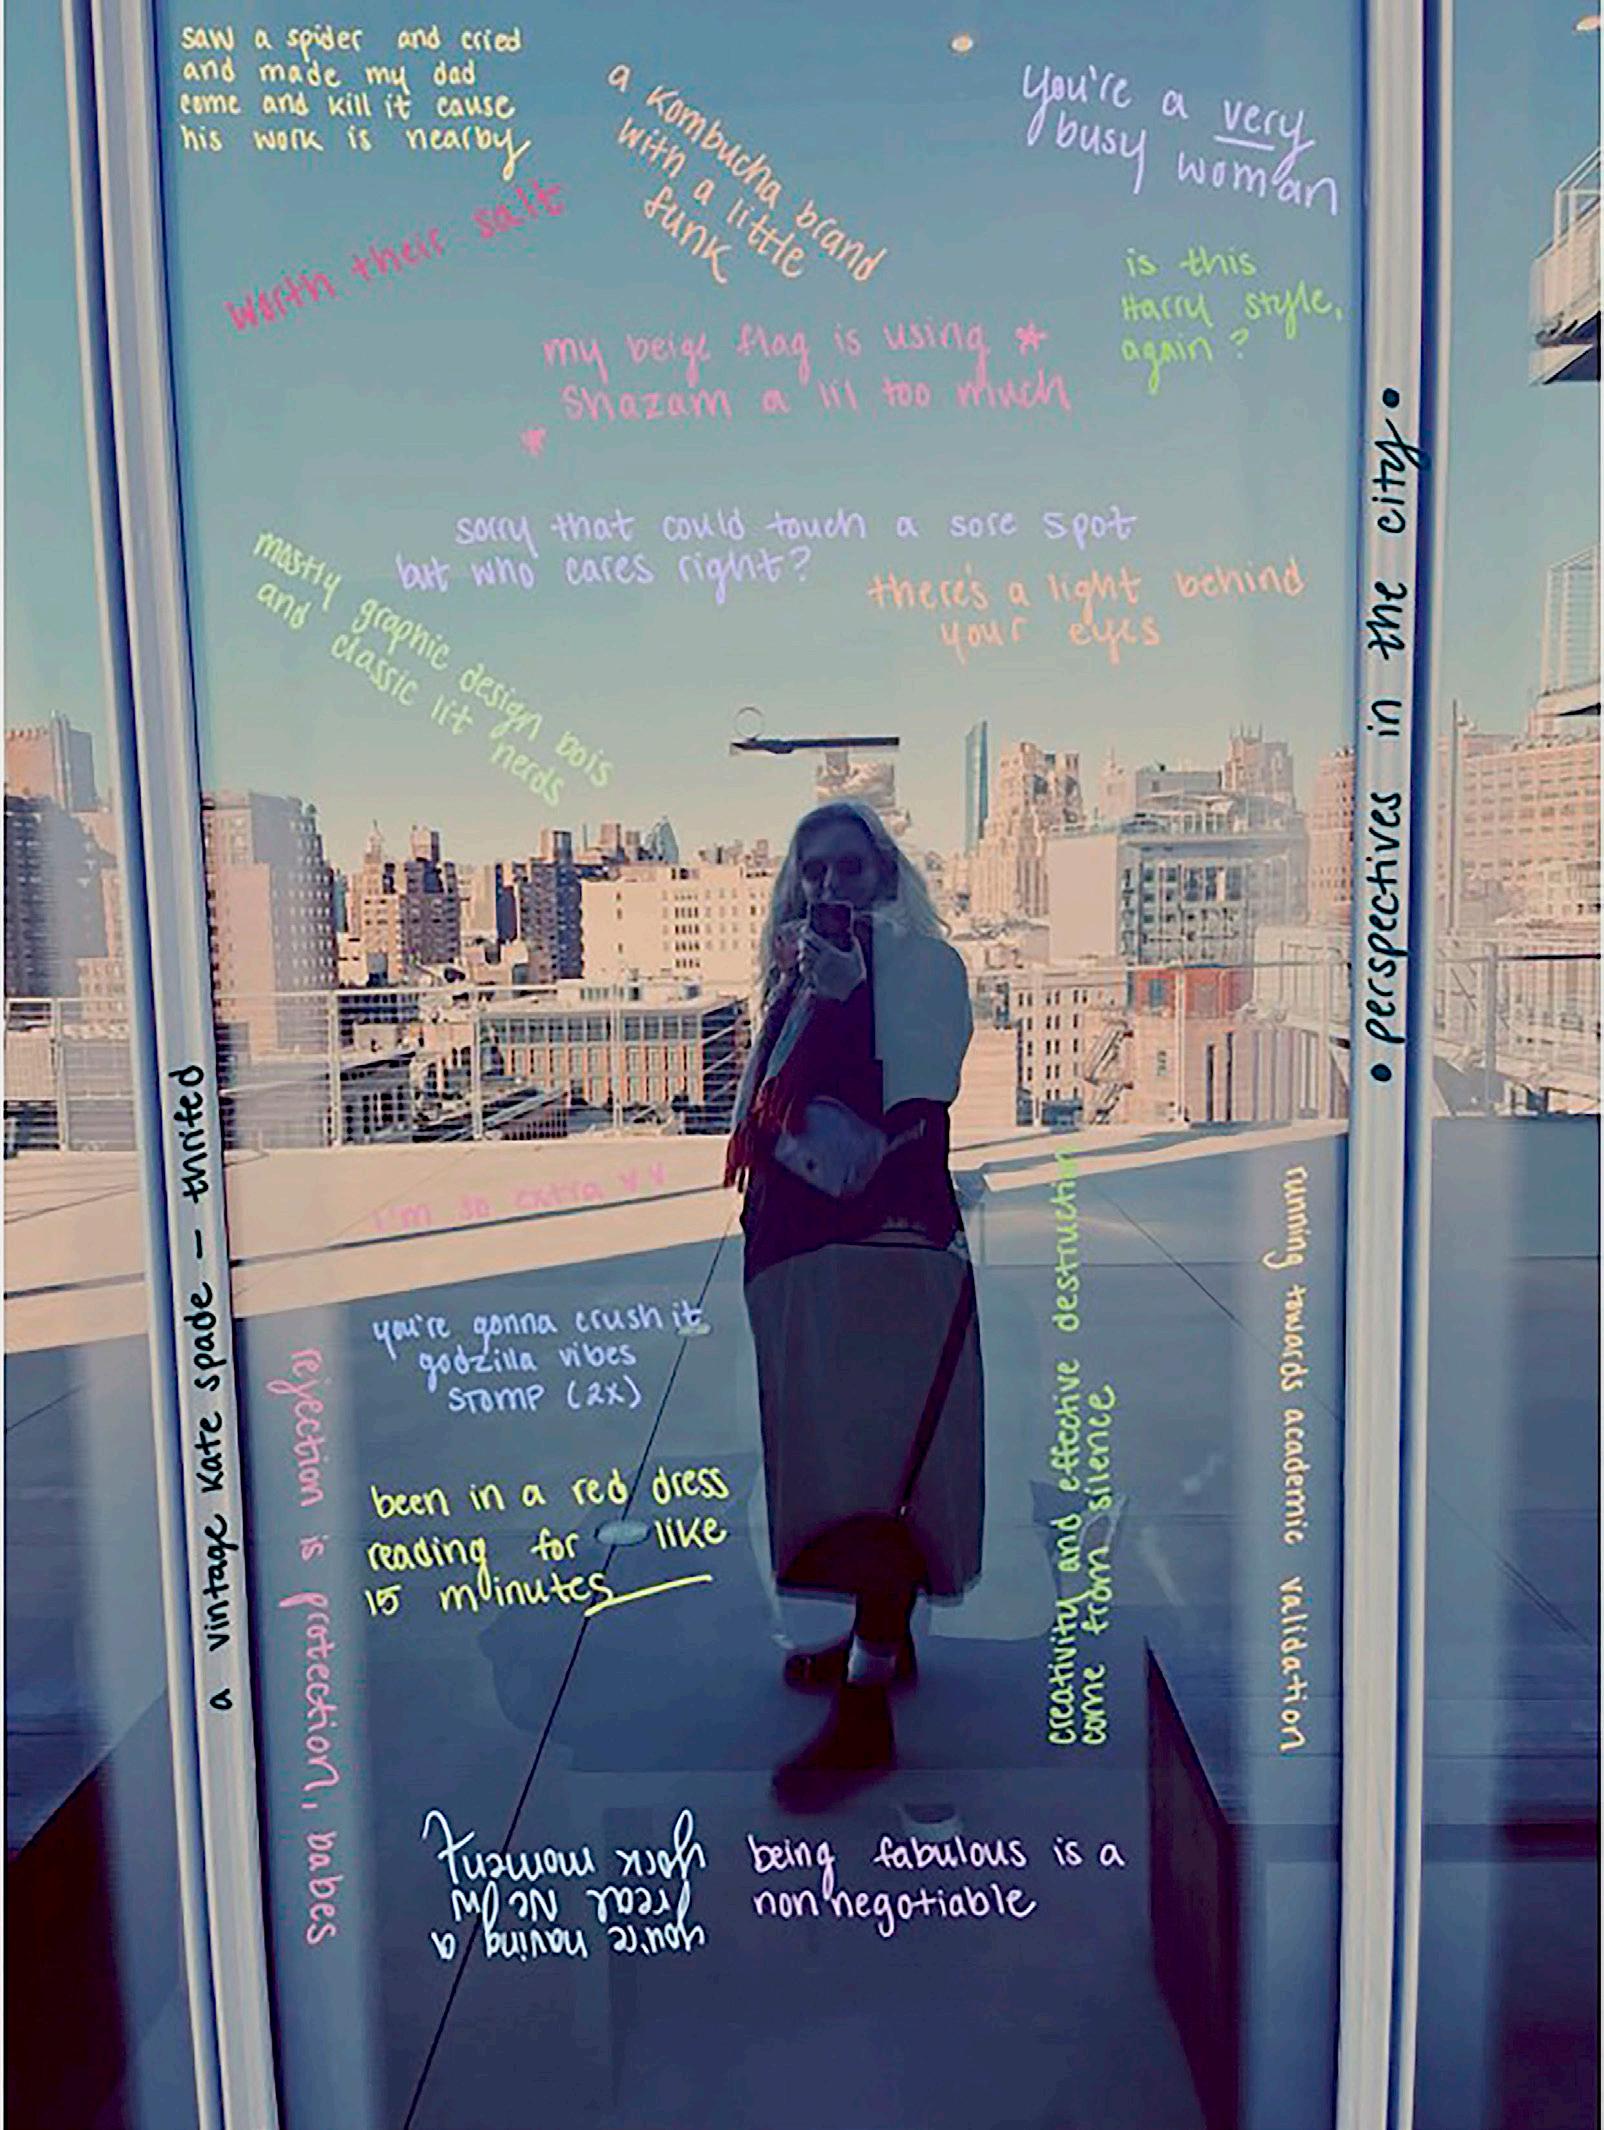 saw a spider and cried
and made my dad
come and kill it cause
his work is nearby
a kombucha brand
with a little
funk
you're a very
busy woman
worth their salt
is this
Harry Style,
again?
my beige flag is using
Shazam a lil too much
sorry that could touch a sore spot
but who cares right?
there's a light behind
your eyes
mostly graphic design bois
and classic lit nerds
• perspectives in the city •
a vintage Kate spade – thrifted
i'm so extra
you're gonna crush it
godzilla vibes
stomp (2x)
rejection is protection, babes
been in a red dress
reading for like
15 minutes
creativity and effective destruction
come from silence
running towards academic validation
you're having a
real New
York moment
being fabulous is a
non negotiable